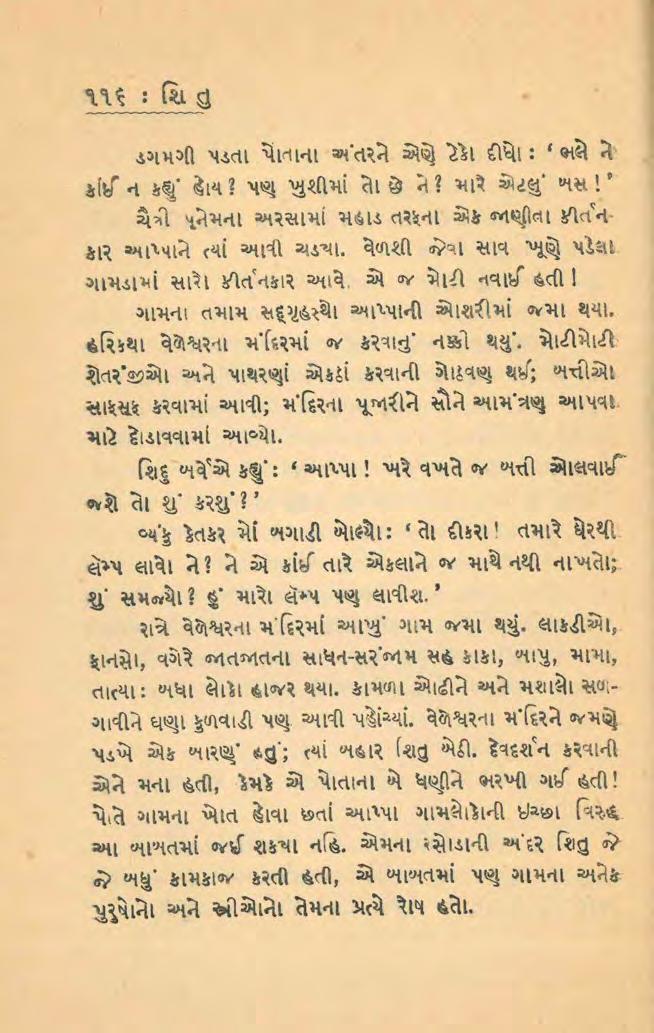 ૧૧૬ : શિ તુ
ડગમગી પડતા પોતાના અંતરને એણે ટેકો દીધો : ‘ ભલે ને
કાંઈ ન કહ્યું હોય ? પણ ખુશીમાં તો છે ને ? મારે એટલું બસ ! ’
ચૈત્રી પુનેમના અરસામાં મહાડ તરફના એક જાણીતા કીર્તન-
કાર આપ્પાને ત્યાં આવી ચડયા. વેળશી જેવા સાવ ખૂણે પડેલા
ગામડામાં સારો કીર્તનકાર આવે એ જ મોટી નવાઈ હતી !
ગામના તમામ સદ્ગૃહસ્થો આપ્પાની ઓશરીમાં જમા થયા.
હરિકથા વેળેશ્વરના મંદિરમાં જ કરવાનું નક્કી થયું. મોટીમોટી
શેતરંજીઓ અને પાથરણાં એકઠાં કરવાની ગોઠવણ થઈ; બત્તીઓ
સાફસુફ કરવામાં આવી; મંદિરના પૂજારીને સૌને આમંત્રણ આપવા
માટે દોડાવવામાં આવ્યો.
શિદુ બર્વેએ કહ્યું : ‘ આપ્પા ! ખરે વખતે જ બત્તી ઓલવાઈ
જશે તો શું કરશું ? ’
વ્યંકુ કેતકર મોં બગાડી બોલ્યો : ‘ તો દીકરા ! તમારે ઘેરથી
લૅમ્પ લાવો ને ? ને એ કાંઈ તારે એકલાને જ માથે નથી નાખતો;
શું સમજ્યો ? હું મારો લૅમ્પ પણ લાવીશ. ’
રાત્રે વેળેશ્વરના મંદિરમાં આખું ગામ જમા થયું. લાકડીઓ,
ફાનસો, વગેરે જાતજાતના સાધન-સરંજામ સહ કાકા, બાપુ, મામા,
તાત્યા : બધા લોકો હાજર થયા. કામળા ઓઢીને અને મશાલો સળ-
ગાવીને ઘણા કુળવાડી પણ આવી પહોંચ્યાં. વેળેશ્વરના મંદિરને જમણે
પડખે એક બારણું હતું; ત્યાં બહાર શિતુ બેઠી. દેવદર્શન કરવાની
એને મના હતી, કેમકે એ પોતાના બે ધણીને ભરખી ગઈ હતી !
પોતે ગામના ખોત હોવા છતાં આપ્પા ગામલોકોની ઇચ્છા વિરુદ્ધ
આ બાબતમાં જઈ શકયા નહિ. એમના રસોડાની અંદર શિતુ જે
જે બધું કામકાજ કરતી હતી, એ બાબતમાં પણ ગામના અનેક
પુરુષોનો અને સ્ત્રીઓનો તેમના પ્રત્યે રોષ હતો.